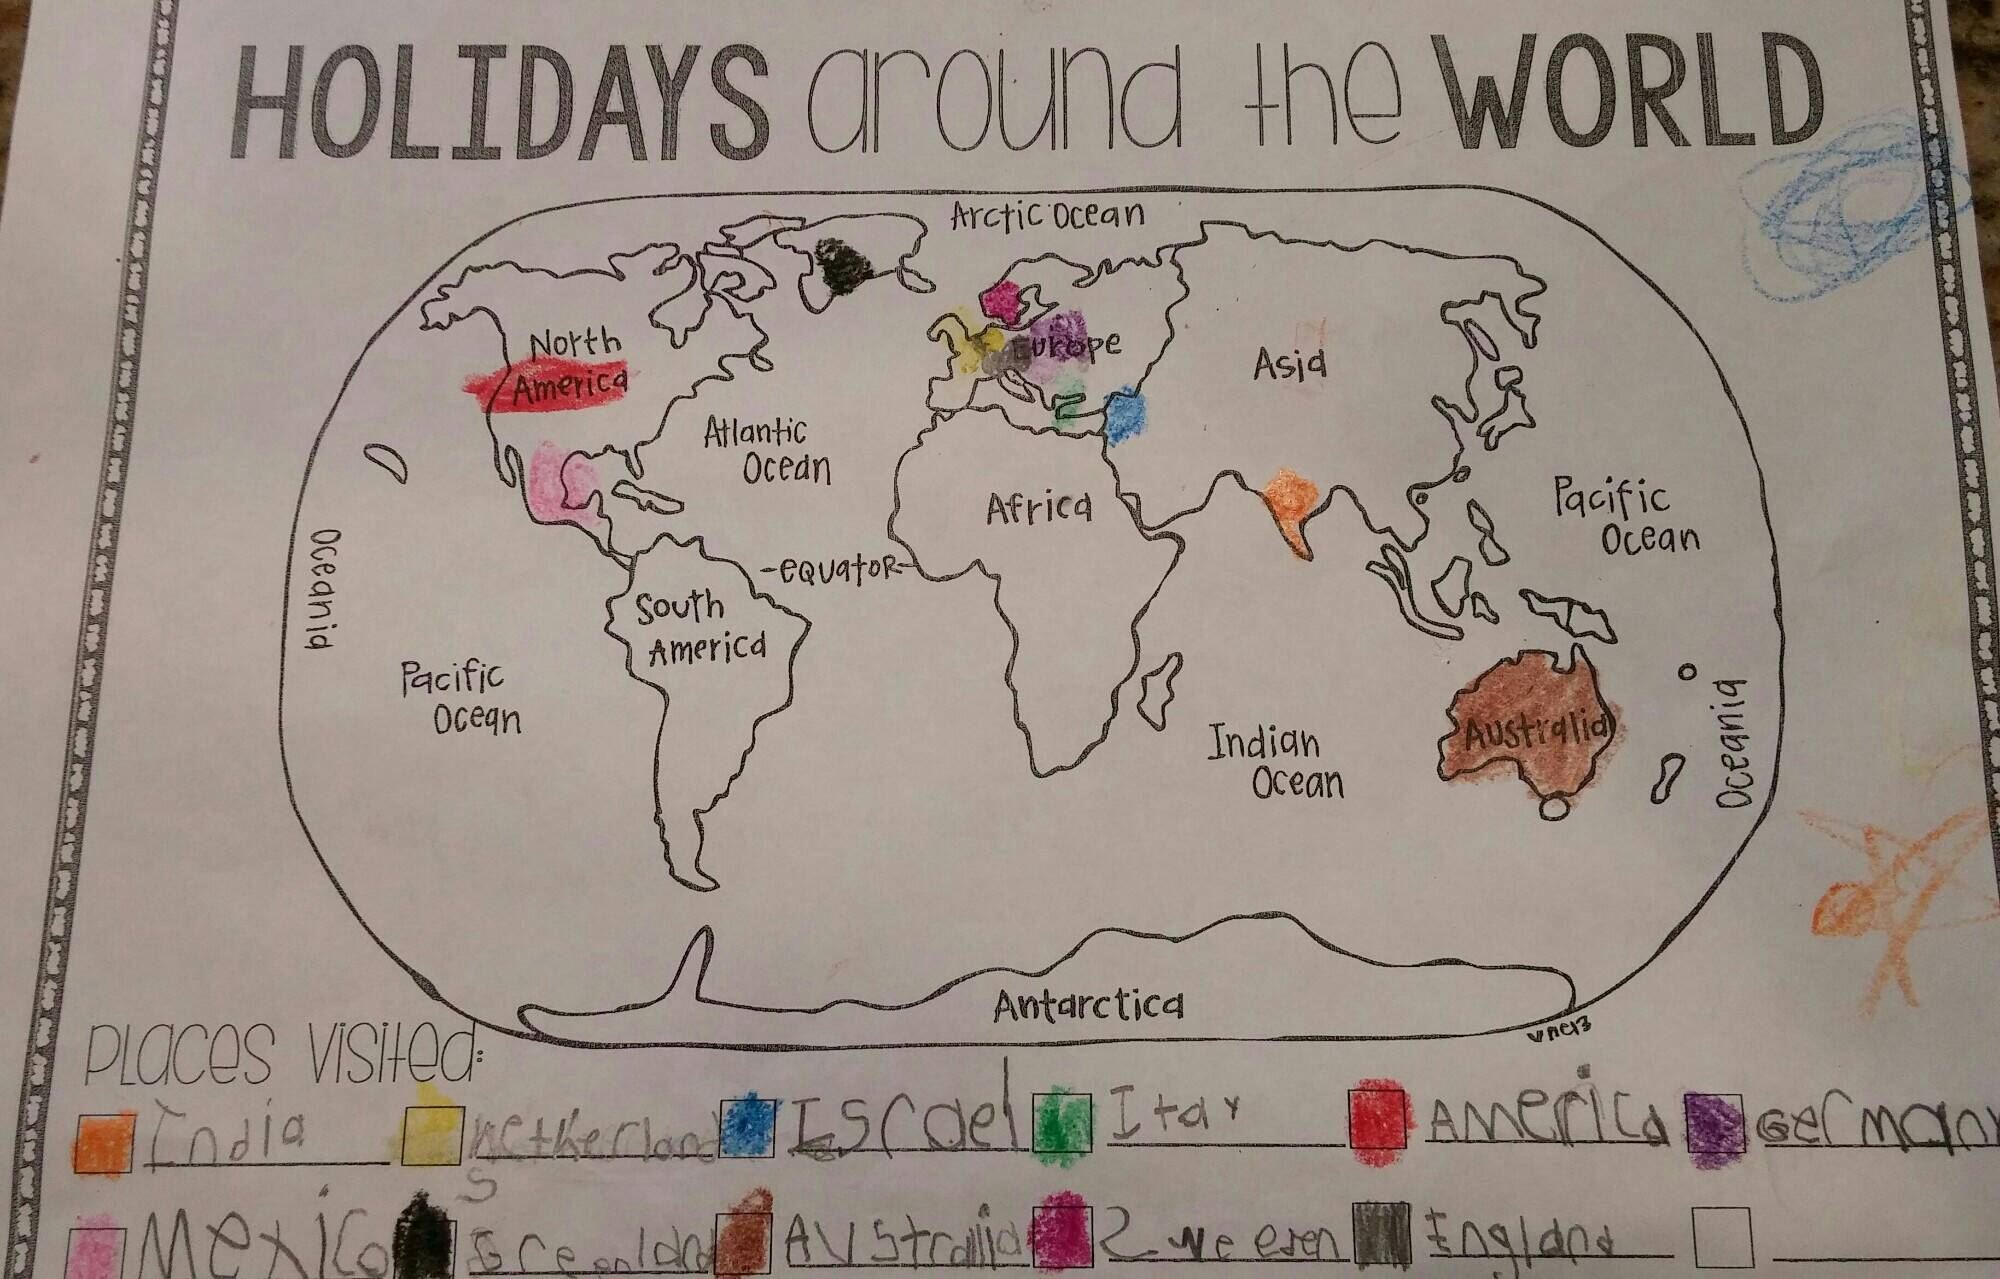 HOLIDAYS around the WORLD
Arctic Ocean
North
America
Europe
Asia
Atlantic
Ocean
Africa
Pacific
Ocean
Oceania
-equator-
South
America
Pacific
Ocean
Indian
Ocean
Australia
Oceania
Antarctica
Places Visited:
India
Netherland
s
Israel
Itay
America
Germany
Mexico
Greenland
Australia
Sweeden
England